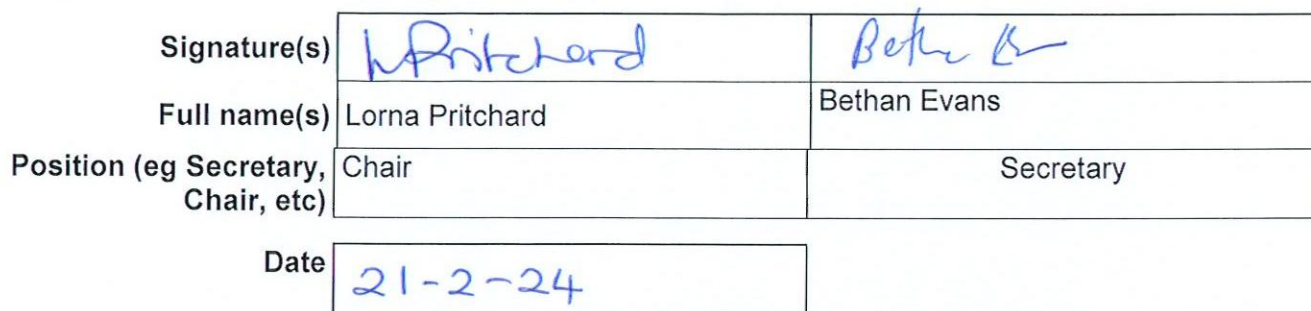 Signature(s) LPritchard Beth
Full name(s) Lorna Pritchard Bethan Evans
Position (eg Secretary, Chair Secretary
Chair, etc)
Date 21-2-24